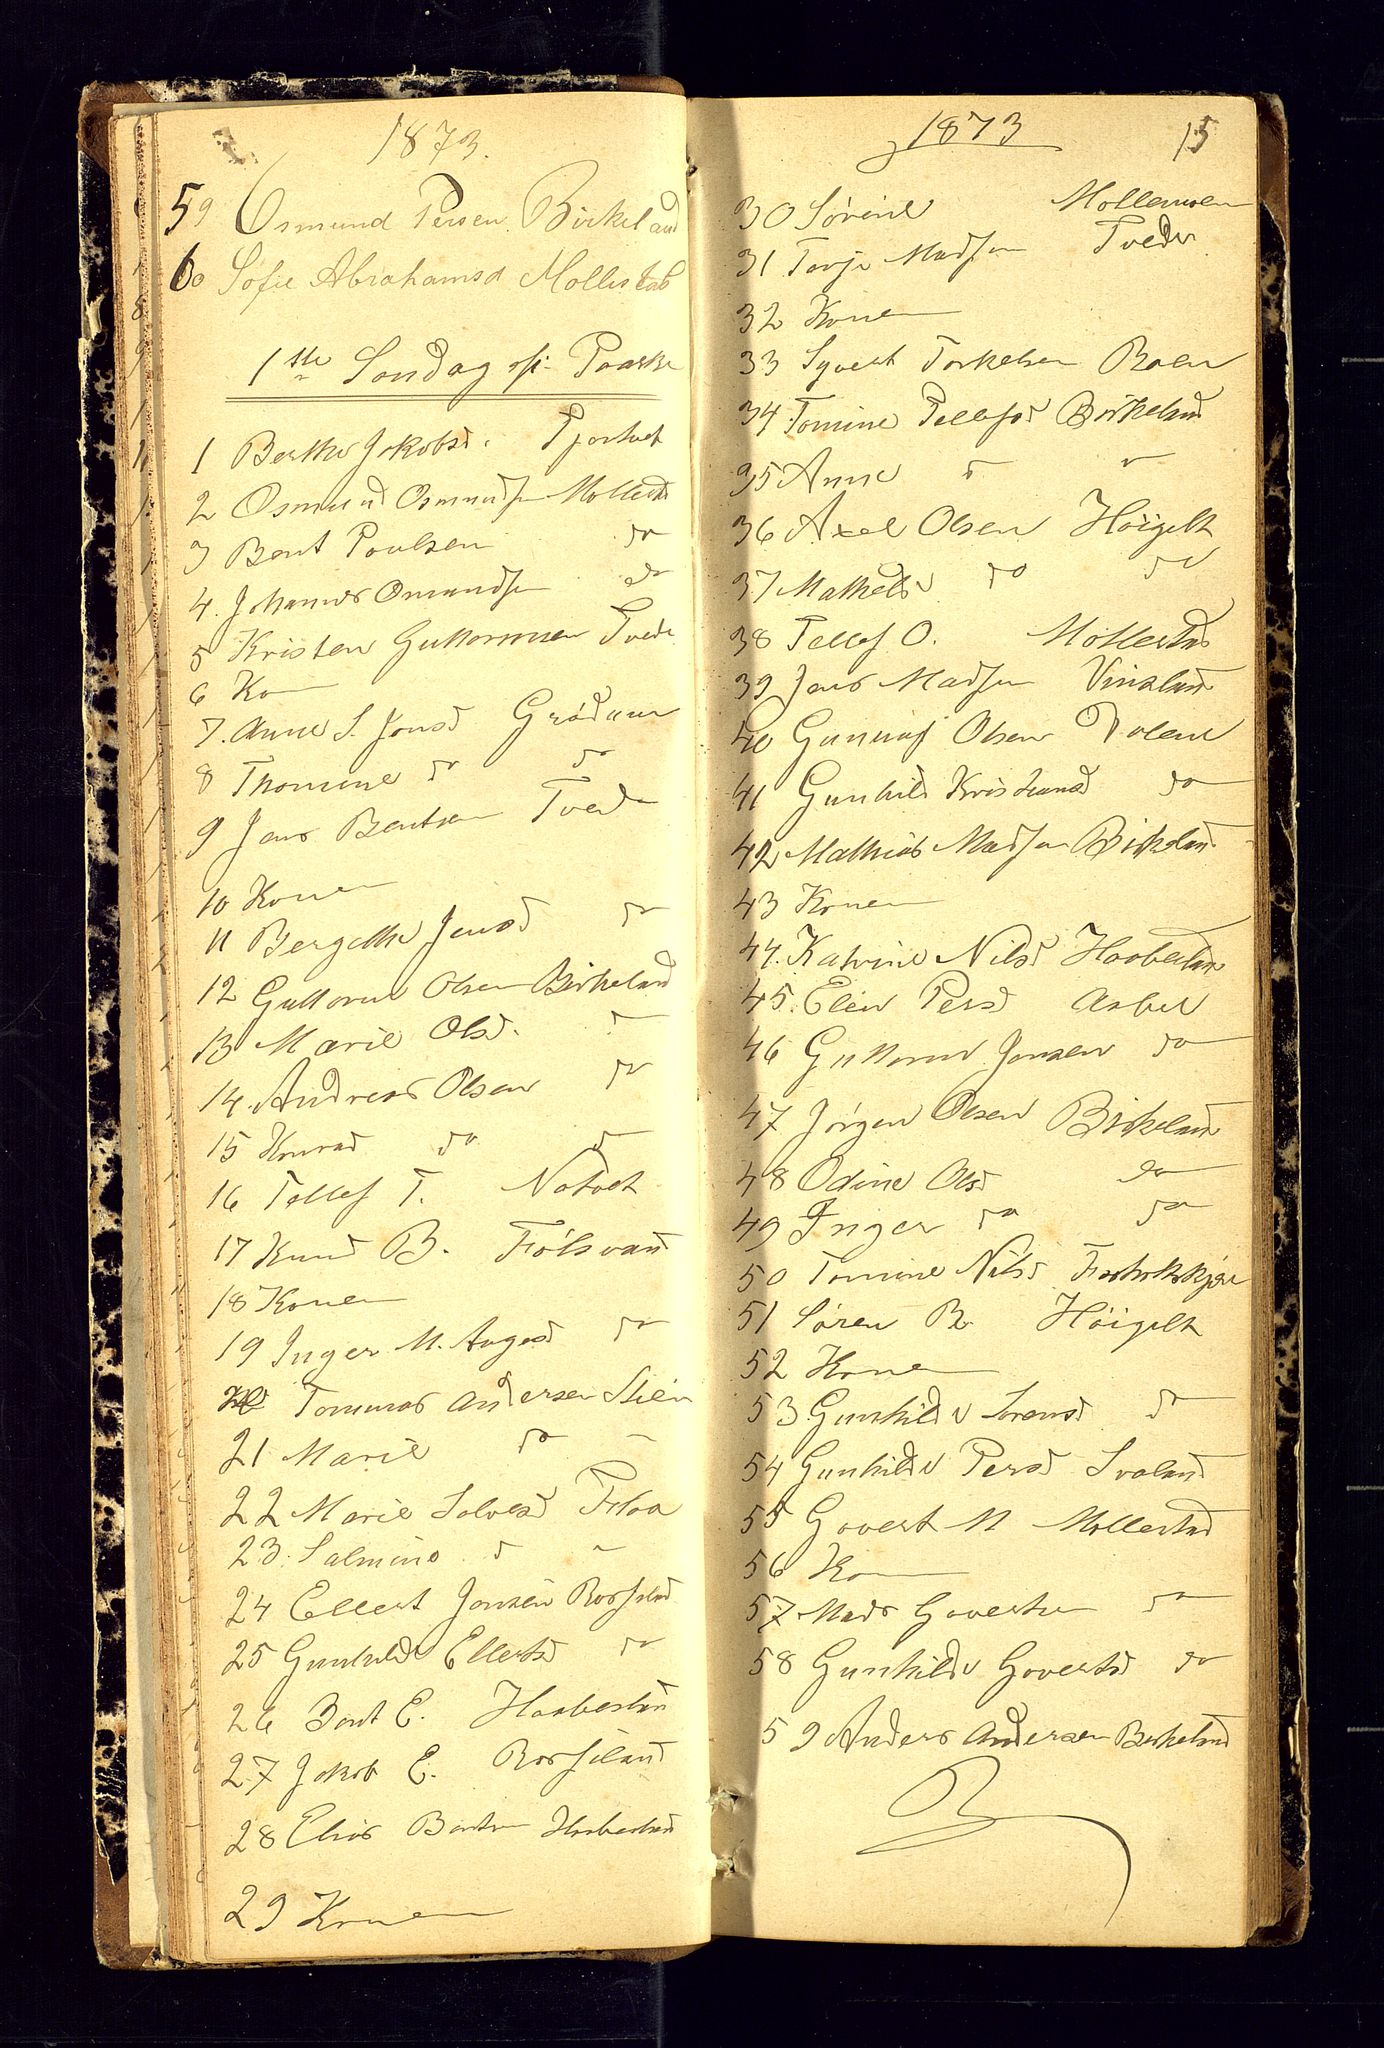 1873.
59 Osmund Persen Birkeland
60 Sofie Abrahamsd Mollestad
1ste Søndag p: Paaske
1 Berthe Jakobsd. Tjortvet
2 Osmund Osmundsen Mollestd
3 Bent Poulsen do
4. Johannes Osmundsen do
5 Kristen Guttormsen Tvede
6 Ko
7. Anne S. Jonsd Grødum
8 Thomine do do
9 Jens Bentsen Tvede
10 Konen
11 Bergethe Jensd do
12 Guttorm Olsen Birkeland
13 Marie Olsd. d
14. Andreas Olsen do
15 Konrad do d
16 Tellef T. Natvet
17 Knud B. Følsvand
18 Konen
19 Inger M. Aagesd do
Tommas Andersen Stien
21 Marie do
22 Marie Solvesd Flaa
23. Salmine d
24 Ellert Jonsen Rosseland
25 Gunhilde Ellertsd do
26 Bent E. Haabestad
27 Jakob E. Rosseland
28 Elias Bentsen Haabestad
29 Konen
1873 15
30 Sørine Mollemoen
31 Torje Madsen Tvede
32 Konen
33 Syvert Torkelsen Roen
34 Tomine Tellefsd Birkeland
35 Anne d
36 Axel Olsen Høigilt
37 Mathilde do do
38 Tellef O. Mollestad
39 Jens Madsen Vinaland
40 Gunuf Olsen Dalene
41 Gunhild Kristiansd do
42 Mathias Madsen Birkeland
43 Konen
44. Katrine Nilsd Haabestad
45. Elen Persd Asbel
46 Guttorm Jonsen do
47 Jørgen Olsen Birkeland
48 Odine Olsd do
49 Inger do do
50 Tomine Nilsd
51 Søren B. Høigilt
52 Konen
53 Gunhilde Sørensd do
54 Gunhilde Persd Svaland
55 Govert M Mollestad
56 Ko
57 Mads Govertsen do
58 Gunhilde Govertsd do
59 Anders Andersen Birkeland